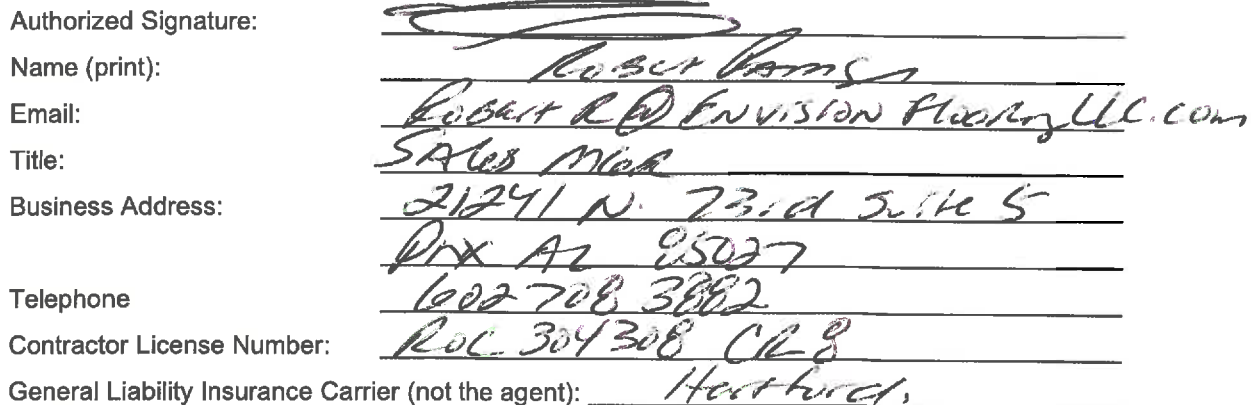 Authorized Signature:
Name (print): Robert
Email: RobertR@EnvisionFlooringLLC.com
Title: Sales MGR
Business Address: 21241 N. 23rd Suite 5
Phx AZ 85027
Telephone 602 708 3882
Contractor License Number: ROC 304308 CR8
General Liability Insurance Carrier (not the agent): Hartford.